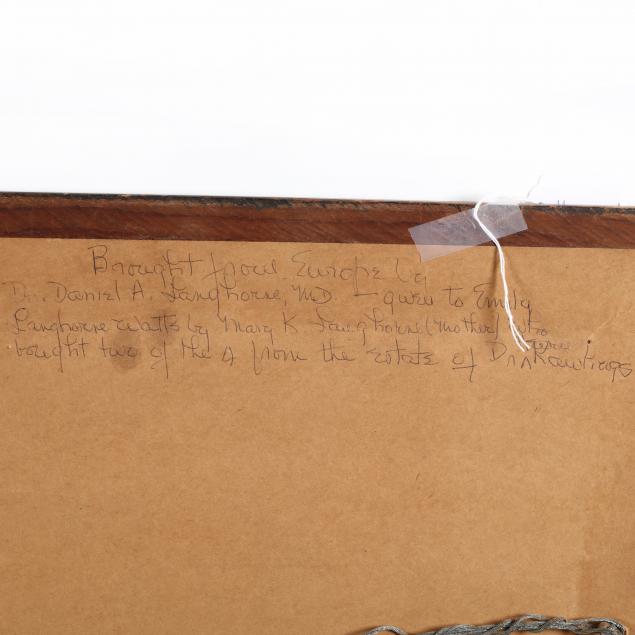 Brought from Europe by
Dr. Daniel A. Langhorne, MD. — given to Emily
Langhorne Watts by Mary K. Langhorne (mother) who
bought two of the 4 from the estate of Dr. Rawlings